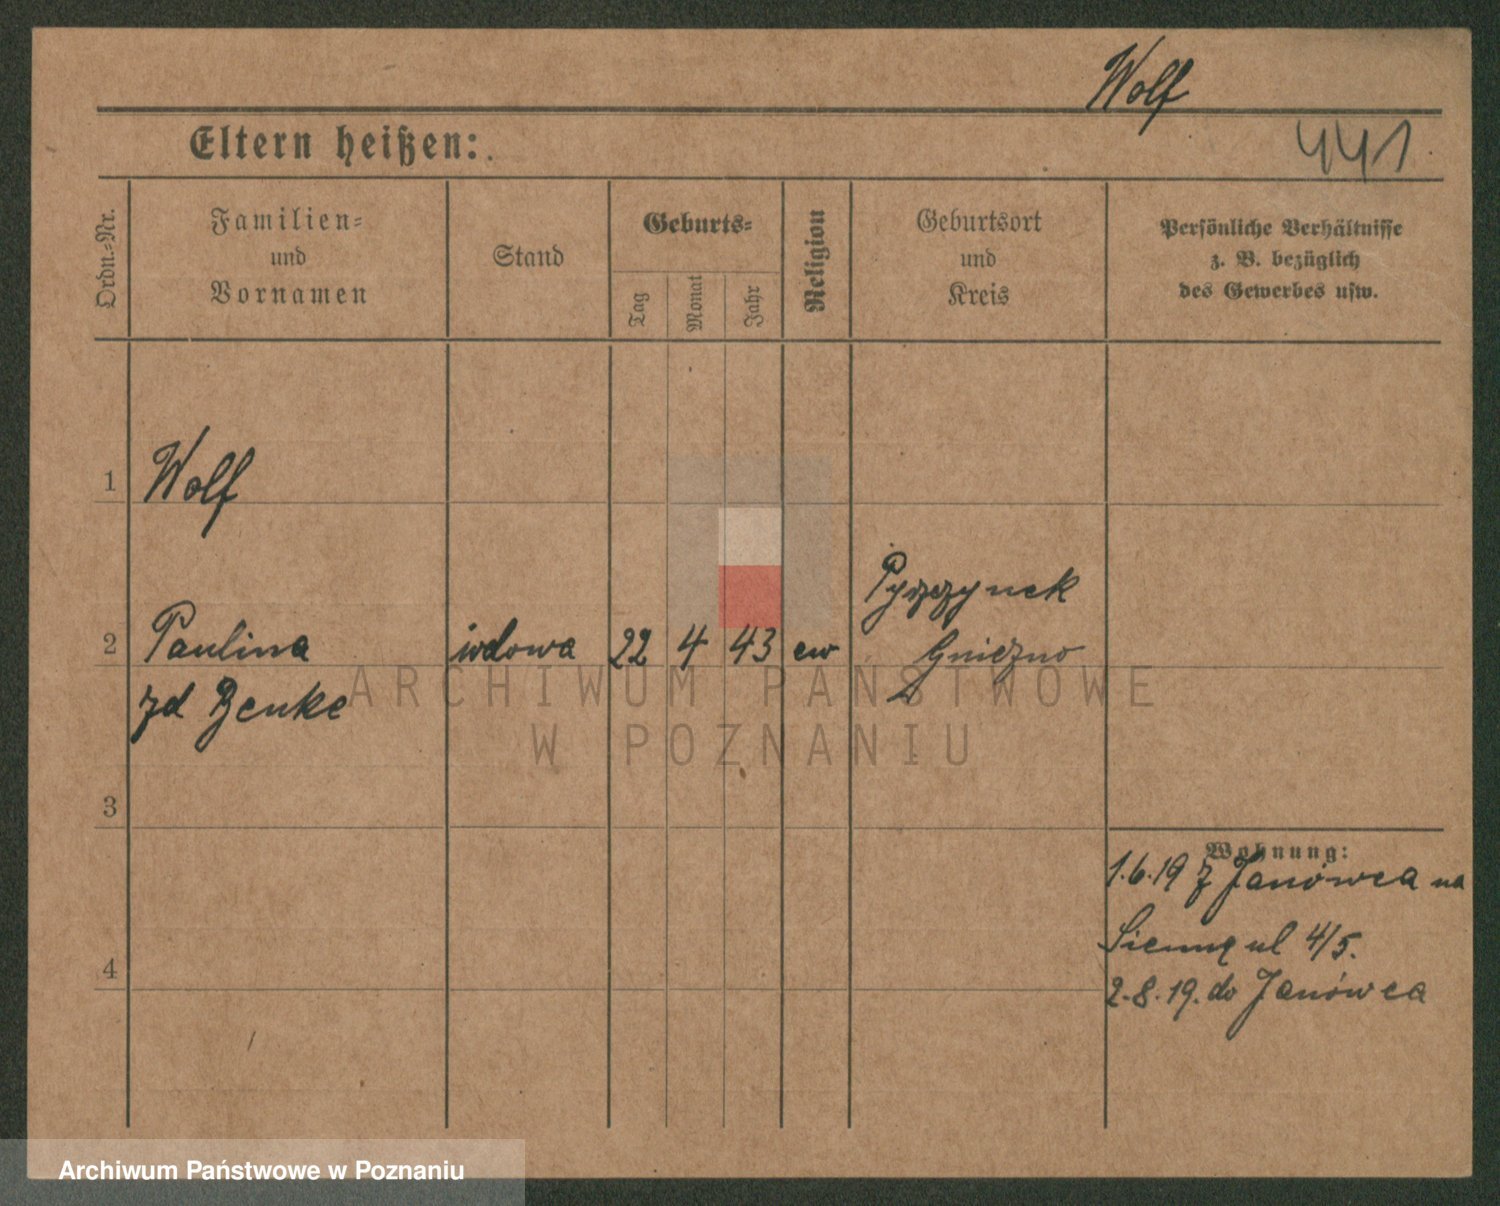 Wolf
Eltern heißen:
441
Ordn.-Nr.
Familien-
und
Vornamen
Stand
Geburts-
Tag
Monat
Jahr
Religion
Geburtsort
und
Kreis
Persönliche Verhältnisse
z. B. bezüglich
des Gewerbes usw.
1 Wolf
Pyszczynek
2 Paulina wdowa 22 4 43 ew Gniezno
zd Benke
ARCHIWUM PAŃSTWOWE
W POZNANIU
3
Wohnung:
1.6.19 z Janówca na
Sienną ul 4/5.
4
2.8.19. do Janówca
Archiwum Państwowe w Poznaniu